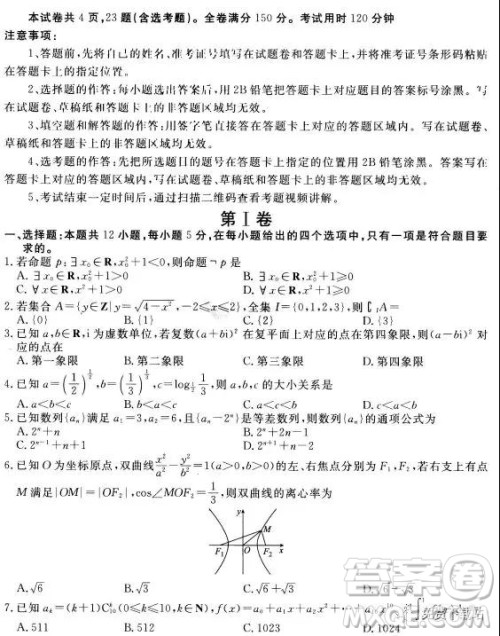 本试卷共 4 页,23 题(含选考题)。全卷满分 150 分。考试用时 120 分钟
注意事项:
1、答题前,先将自己的姓名、准考证号填写在试题卷和答题卡上,并将准考证号条形码粘贴
在答题卡上的指定位置。
2、选择题的作答:每小题选出答案后,用 2B 铅笔把答题卡上对应题目的答案标号涂黑。写
在试题卷、草稿纸和答题卡上的非答题区域均无效。
3、填空题和解答题的作答:用签字笔直接答在答题卡上对应的答题区域内。写在试题卷、
草稿纸和答题卡上的非答题区域均无效。
4、选考题的作答:先把所选题目的题号在答题卡上指定的位置用 2B 铅笔涂黑。答案写在
答题卡上对应的答题区域内,写在试题卷、草稿纸和答题卡上的非答题区域均无效。
5、考试结束一定时间后,通过扫描二维码查看考题视频讲解。
第Ⅰ卷
一、选择题:本题共 12 小题,每小题 5 分,在每小题给出的四个选项中,只有一项是符合题目要
求的。
1. 若命题 p:∃x₀∈R,x₀²+1<0,则命题¬p 是
A. ∃x₀∈R,x₀²+1>0 B. ∃x₀∈R,x₀²+1≥0
C. ∀x∈R,x²+1>0 D. ∀x∈R,x²+1≥0
2. 若集合 A={y∈Z|y=√(4-x²),-2≤x≤2},全集 I={0,1,2,3},则∁ᵢA=
A. {0} B. {1} C. {2} D. {3}
3. 已知 a,b∈R,i 为虚数单位,若复数(a+bi)² 在复平面上对应的点在第四象限,则(a-bi)² 对
应的点在
A. 第一象限 B. 第二象限 C. 第三象限 D. 第四象限
4. 已知 a=(1/2)^(1/3),b=(1/3)^(1/2),c=log_(1/2) 1/3,则 a,b,c 的大小关系是
A. a<b<c B. b<a<c C. c<a<b D. a<c<b
5. 已知数列{aₙ}满足 a₁=3,a₂=6,且{aₙ-2ⁿ}是等差数列,则{aₙ}的通项公式为
A. 2ⁿ+n B. 2ⁿ+2n-1
C. 2ⁿ⁻¹+n+1 D. 2ⁿ+n+1
6. 已知 O 为坐标原点,双曲线 x²/a²-y²/b²=1(a>0,b>0)的左、右焦点分别为 F₁,F₂,若支上有点
M 满足|OM|=|OF₂|,cos∠MOF₂=1/3,则双曲线的离心率为
y
M
F₁ O F₂ x
A. √6 B. √3 C. √6+√3 D. √6-√3
7. 已知 aₖ=(k+1)C₁₀ᵏ(0≤k≤10,k∈N),f(x)=a₀+a₁x+a₂x²+
A. 511 B. 512 C. 1023 D. 1024
答案圈